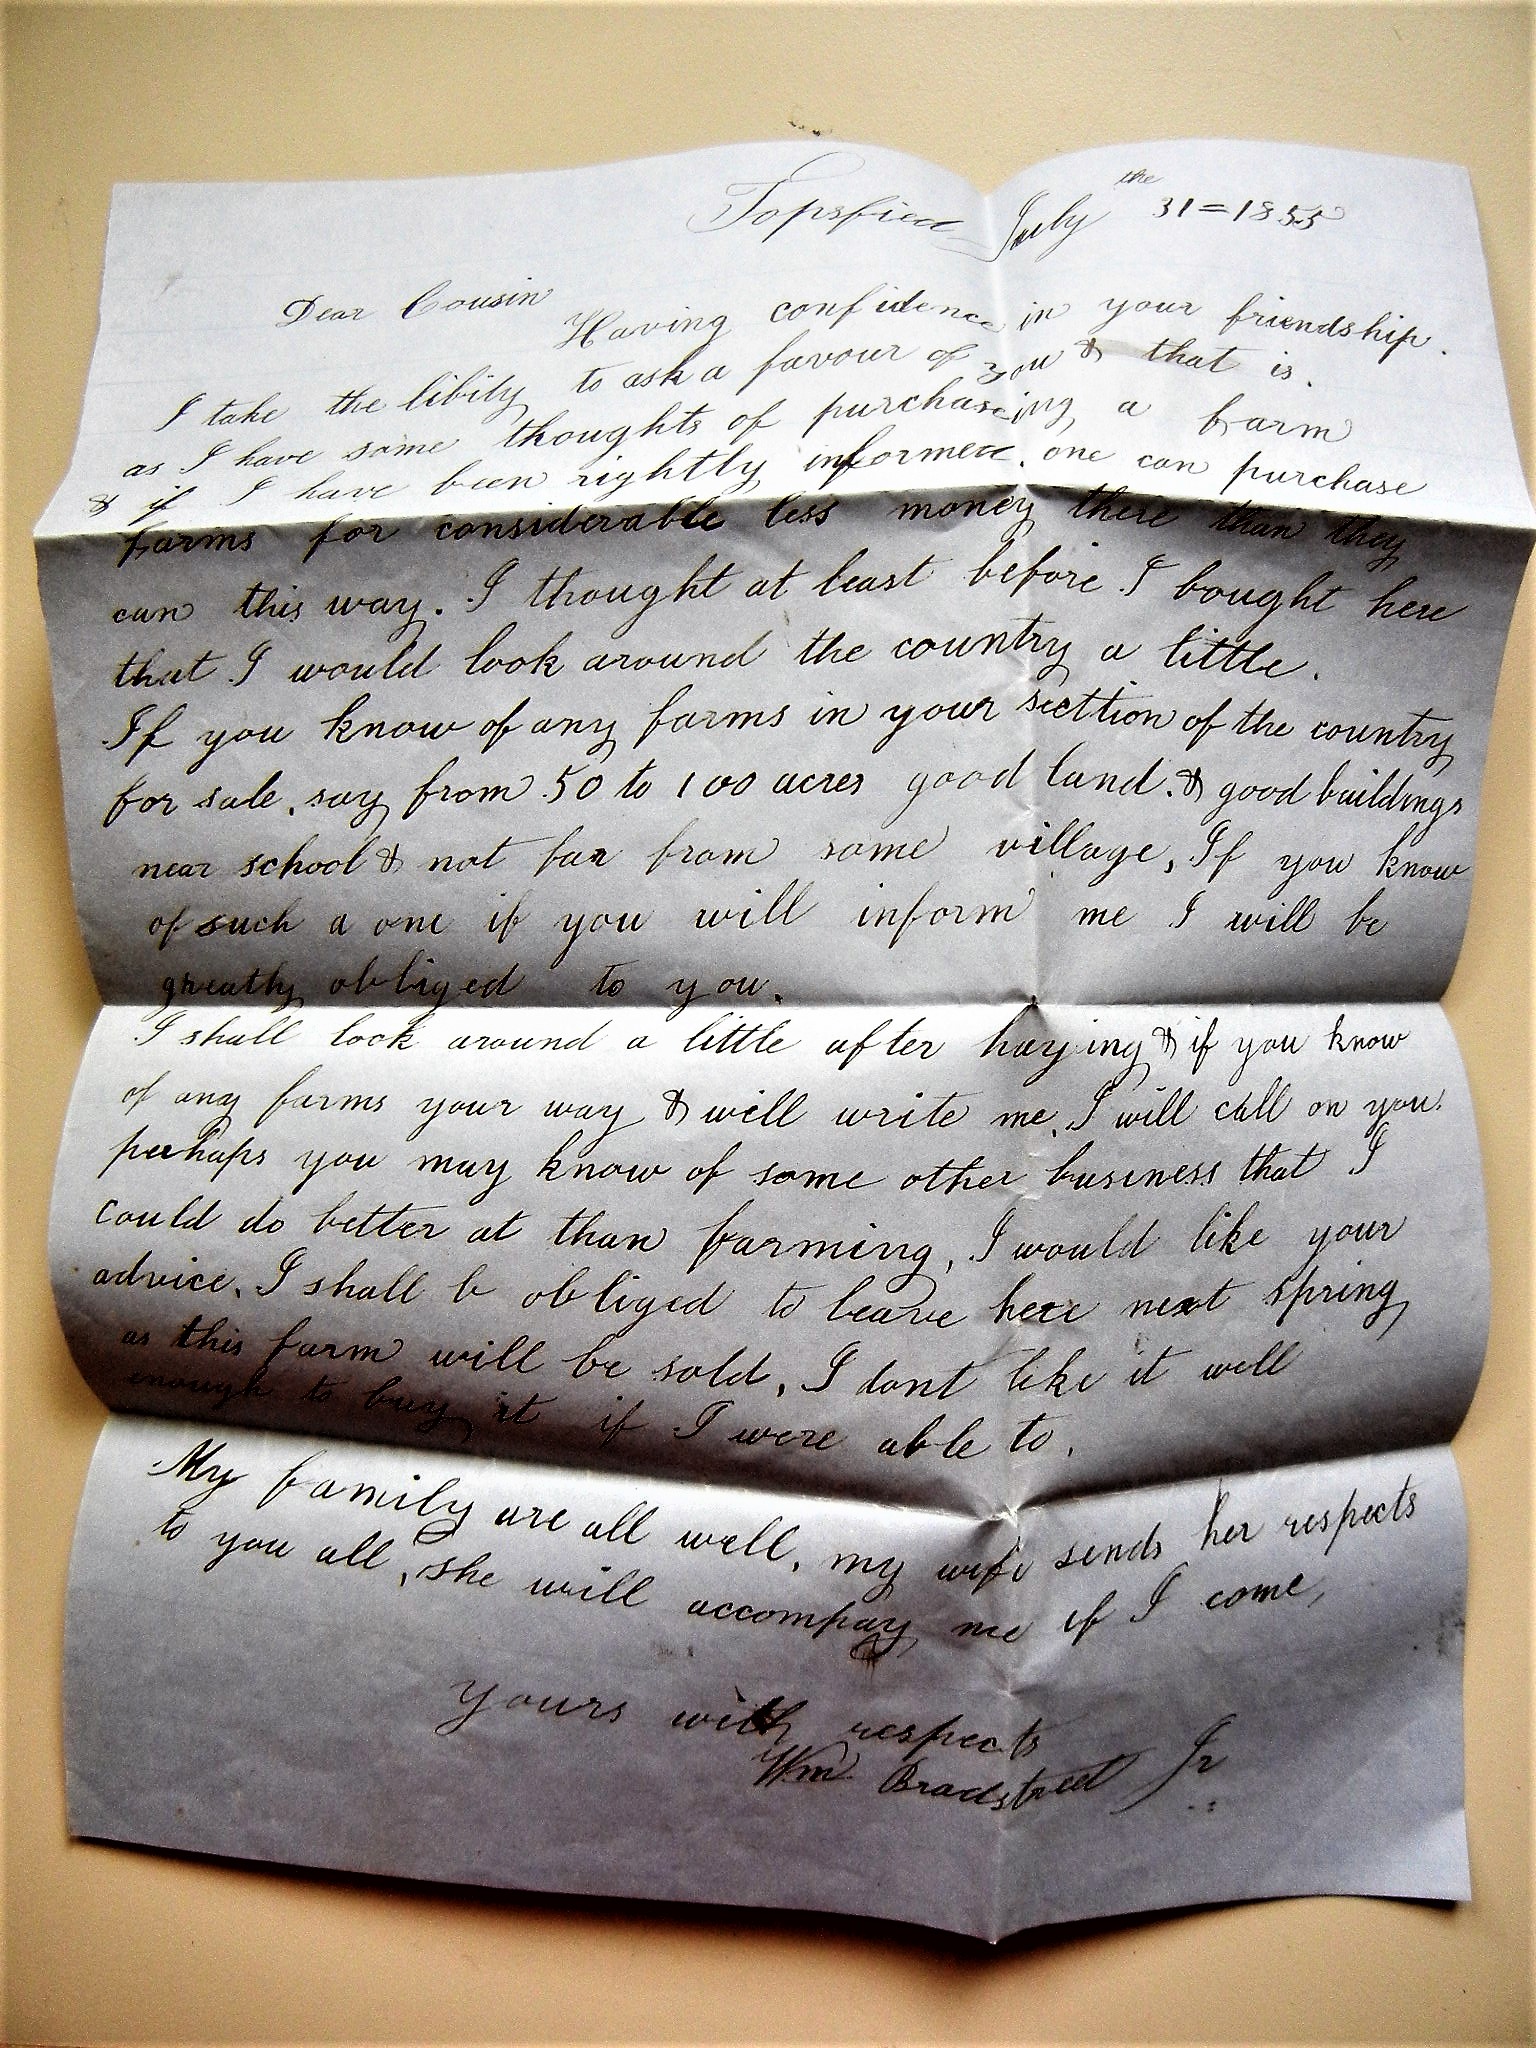 Topsfied July the 31=1855
Dear Cousin
Having confidence in your friendship.
I take the libity to ask a favour of you & that is.
as I have some thoughts of purchaseing a farm
& if I have been rightly informed. one can purchase
farms for considerable less money there than they
can this way. I thought at least before I bought here
that I would look around the country a little.
If you know of any farms in your secttion of the country
for sale, say from 50 to 100 acres good land. & good buildings
near school & not far from some village, If you know
of such a one if you will inform me I will be
greatly obliged to you.
I shall look around a little after haying & if you know
of any farms your way & will write me. I will call on you.
perhaps you may know of some other business that I
could do better at than farming, I would like your
advice. I shall b obliged to leave here next spring
as this farm will be sold, I dont like it well
enough to buy it if I were able to.
My family are all well, my wife sends her respects
to you all, she will accompay me if I come,
yours with respects
Wm Bradstreet Jr